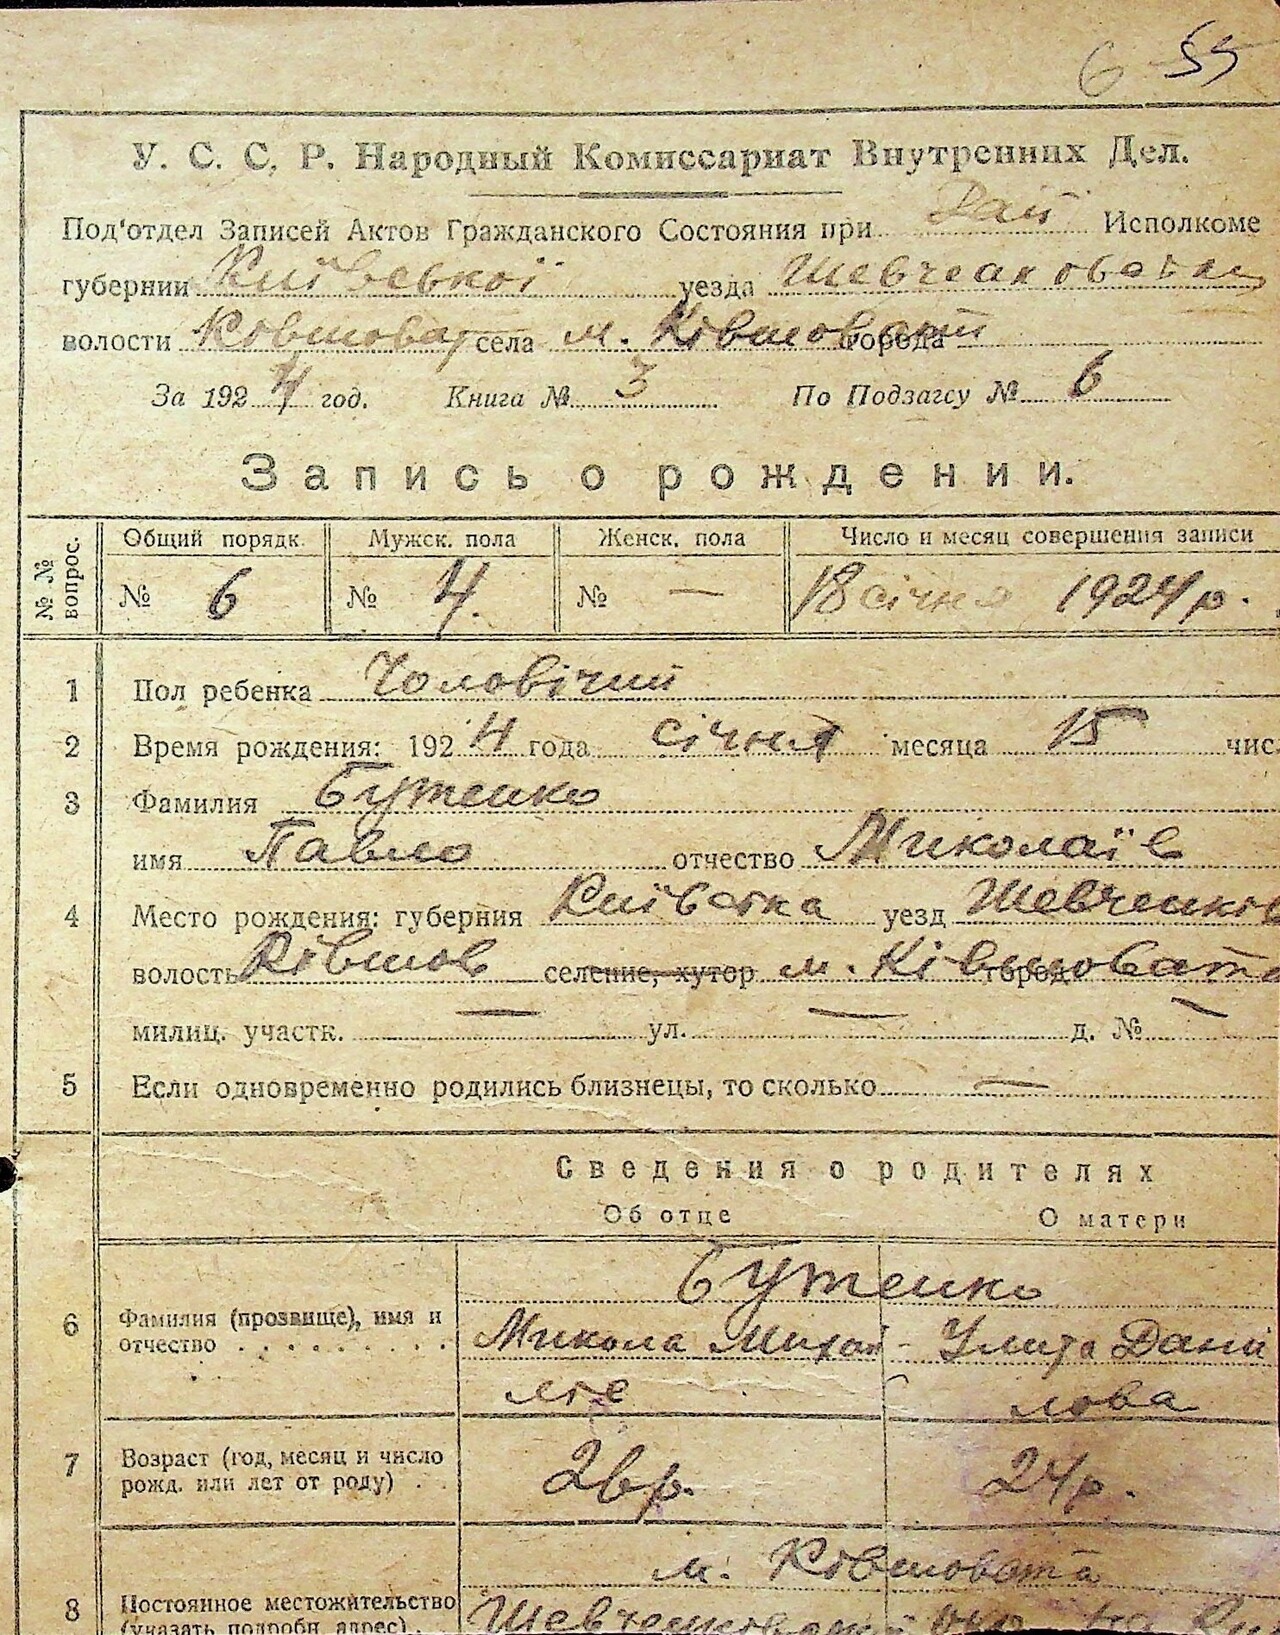 6 55
У. С. С. Р. Народный Комиссариат Внутренних Дел.
Под'отдел Записей Актов Гражданского Состояния при Рай Исполкоме
губернии Київської уезда
волости Ковшоват села м. Ківшоватій города
За 1924 год. Книга № 3 По Подзагсу № 6
Запись о рождении.
№ № вопрос. Общий порядк. Мужск. пола Женск. пола Число и месяц совершения записи
№ 6 № 4. № — 18 січня 1924 р.
1 Пол ребенка Чоловічий
2 Время рождения: 1924 года січня месяца 15 числ
3 Фамилия Бутенко
имя Павло отчество Миколаїв
4 Место рождения: губерния Київська уезд Шевченків
волость Ківшов селение, хутор м. Ківшовата город
милиц. участк. — ул. — д. № —
5 Если одновременно родились близнецы, то сколько —
Сведения о родителях
Об отце О матери
Бутенко
6 Фамилия (прозвище), имя и Микола Михай- Улита Дани
отчество . . . . . . . . . лів лова
7 Возраст (год, месяц и число 26р. 24р.
рожд. или лет от роду) . .
м. Ківшовата
8 Постоянное местожительство
(указать подробн. адрес).